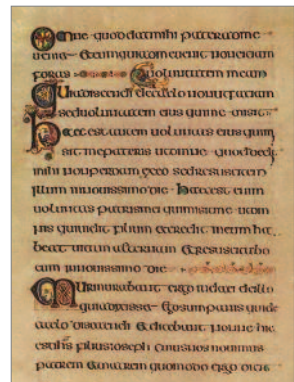 Omne quod dat mihi pater ad me
ueniet Et eum qui ad me uenit non eiciam
foras Quia discendi de caelo non ut faciam
uoluntatem meam
sed uoluntatem eius qui me misit
Haec est autem uoluntas eius qui
misit me patris ut omne quod dedit
mihi non perdam ex eo sed resuscitem
illum in nouissimo die Haec est enim
uoluntas patris mei qui misit me ut om
nis qui uidit filium et credit in eum ha
beat uitam aeternam Et resuscitabo
eum in nouissimo die
Murmurabant ergo iudaei de illo
quia dixisset Ego sum panis qui de
caelo discendi Et dicebant nonne hic
est ihs filius ioseph cuius nos nouimus
patrem Et matrem quomodo ergo dicit